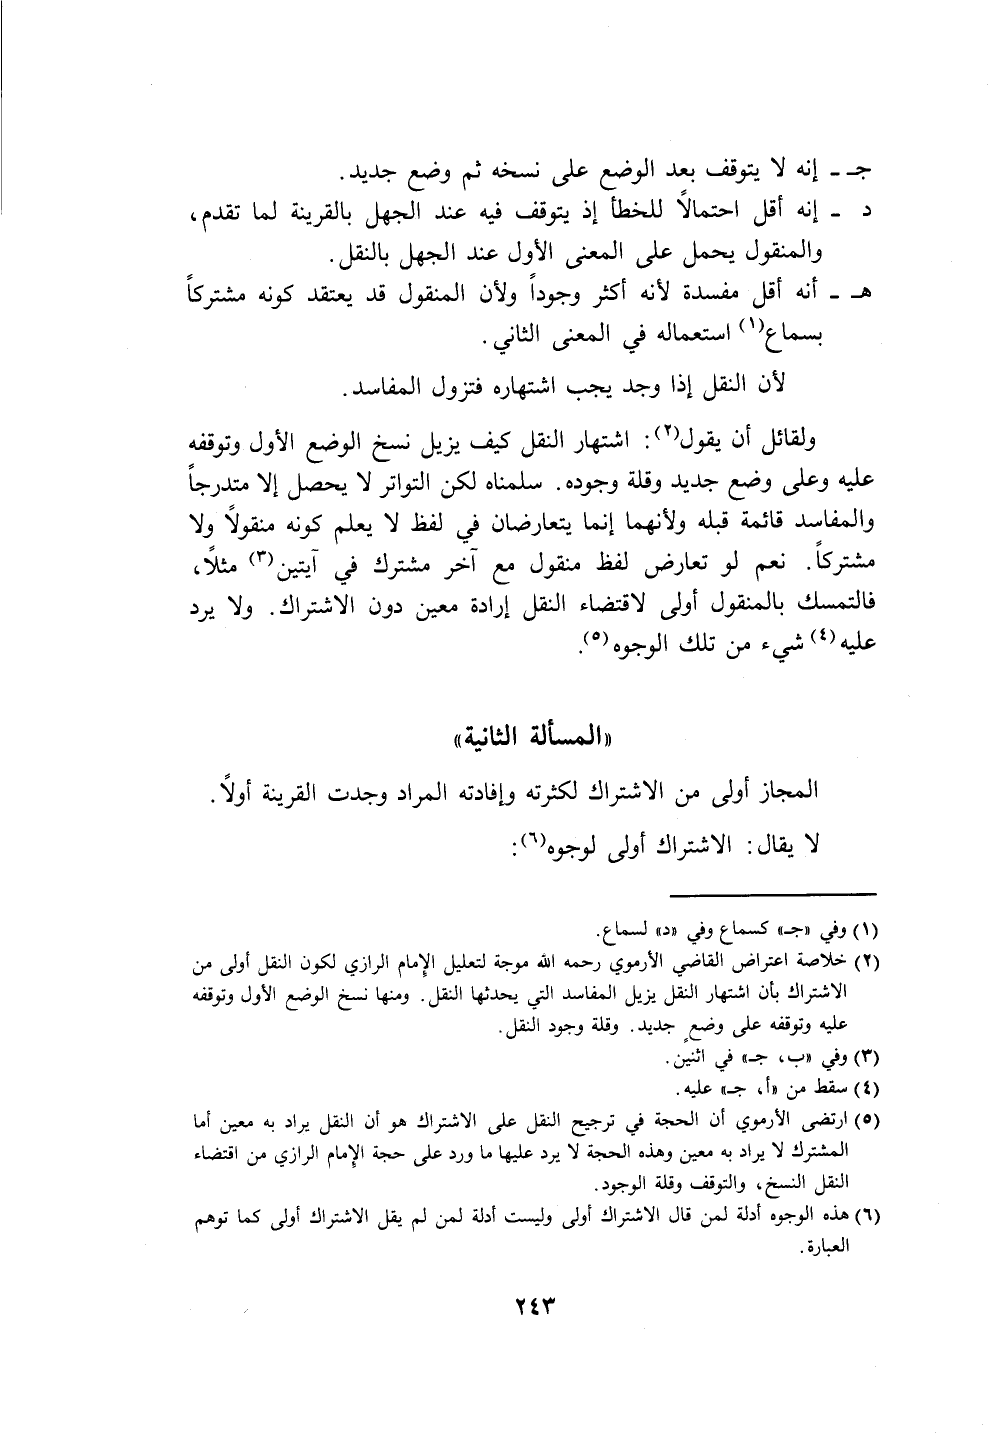 جـ - إنه لا يتوقف بعد الوضع على نسخه ثم وضع جديد.
د - إنه أقل احتمالاً للخطأ إذ يتوقف فيه عند الجهل بالقرينة لما تقدم،
والمنقول يحمل على المعنى الأول عند الجهل بالنقل.
هـ - أنه أقل مفسدة لأنه أكثر وجوداً ولأن المنقول قد يعتقد كونه مشتركاً
بسماع(١) استعماله في المعنى الثاني.
لأن النقل إذا وجد يجب اشتهاره فتزول المفاسد.
ولقائل أن يقول(٢): اشتهار النقل كيف يزيل نسخ الوضع الأول وتوقفه
عليه وعلى وضع جديد وقلة وجوده. سلمناه لكن التواتر لا يحصل إلا متدرجاً
والمفاسد قائمة قبله ولأنهما إنما يتعارضان في لفظ لا يعلم كونه منقولاً ولا
مشتركاً. نعم لو تعارض لفظ منقول مع آخر مشترك في آيتين(٣) مثلاً،
فالتمسك بالمنقول أولى لاقتضاء النقل إرادة معين دون الاشتراك. ولا يرد
عليه(٤) شيء من تلك الوجوه(٥).
«المسألة الثانية»
المجاز أولى من الاشتراك لكثرته وإفادته المراد وجدت القرينة أولاً.
لا يقال: الاشتراك أولى لوجوه(٦):
(١) وفي «جـ» كسماع وفي «د» لسماع.
(٢) خلاصة اعتراض القاضي الأرموي رحمه الله موجة لتعليل الإمام الرازي لكون النقل أولى من
الاشتراك بأن اشتهار النقل يزيل المفاسد التي يحدثها النقل. ومنها نسخ الوضع الأول وتوقفه
عليه وتوقفه على وضعٍ جديد. وقلة وجود النقل.
(٣) وفي «ب، جـ» في اثنين.
(٤) سقط من «أ، جـ» عليه.
(٥) ارتضى الأرموي أن الحجة في ترجيح النقل على الاشتراك هو أن النقل يراد به معين أما
المشترك لا يراد به معين وهذه الحجة لا يرد عليها ما ورد على حجة الإمام الرازي من اقتضاء
النقل النسخ، والتوقف وقلة الوجود.
(٦) هذه الوجوه أدلة لمن قال الاشتراك أولى وليست أدلة لمن لم يقل الاشتراك أولى كما توهم
العبارة.
٢٤٣